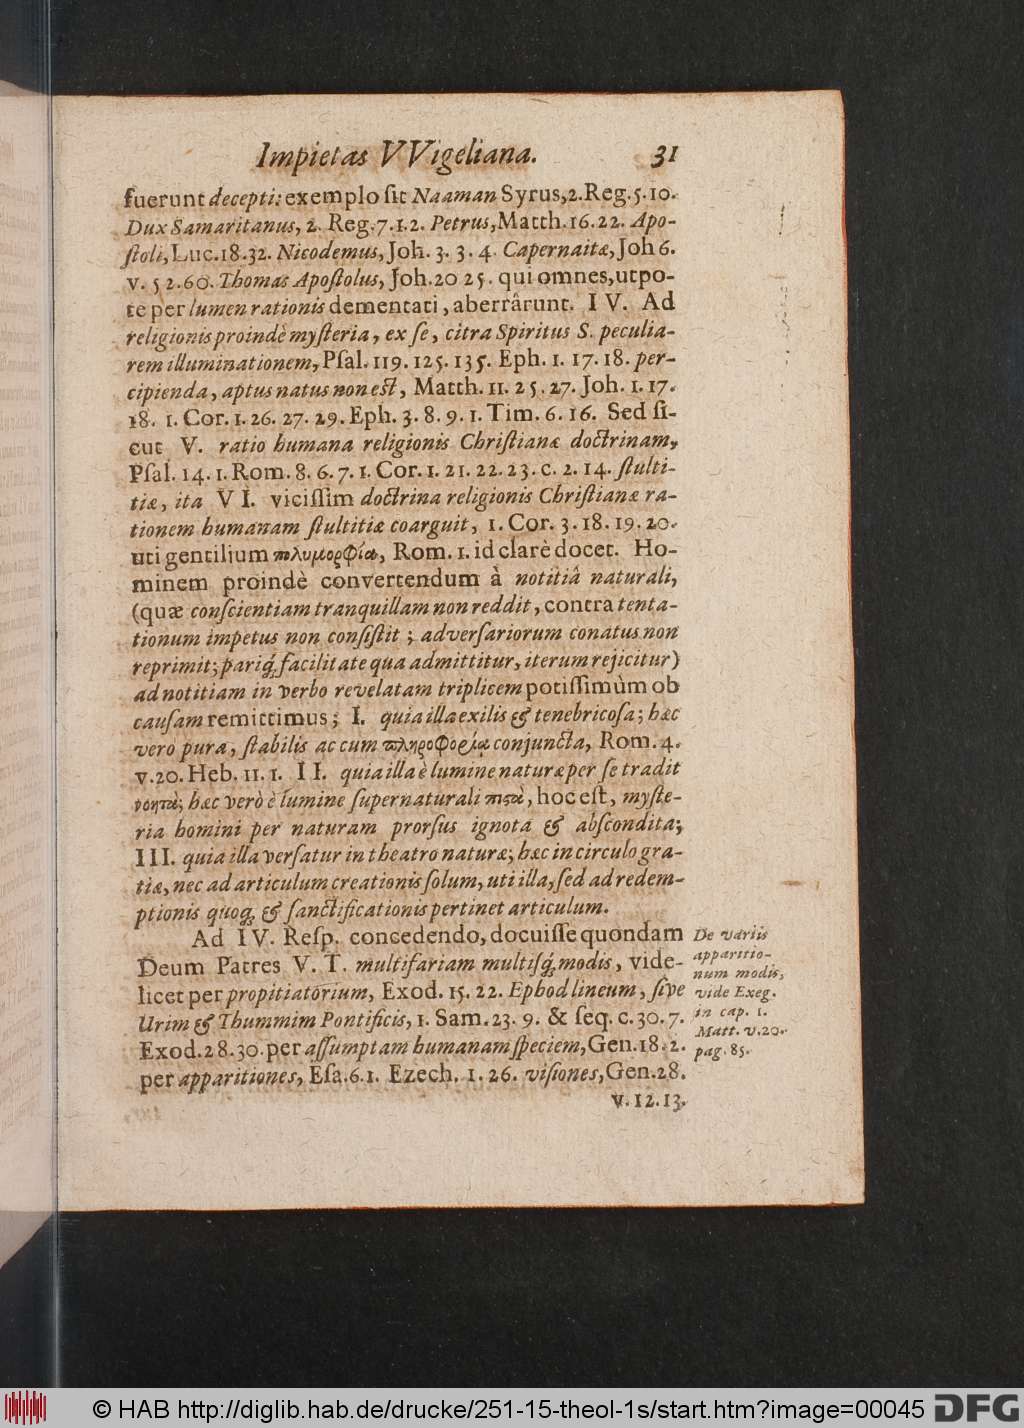 Impietas VVigeliana. 31
fuerunt decepti: exemplo ſit Naaman Syrus, 2. Reg. 5. 10.
Dux Samaritanus, 2. Reg. 7. 1. 2. Petrus, Matth. 16. 22. Apo-
ſtoli, Luc. 18. 32. Nicodemus, Joh. 3. 3. 4. Capernaitæ, Joh 6.
v. 52. 60. Thomas Apoſtolus, Joh. 20 25. qui omnes, utpo-
te per lumen rationis dementati, aberrârunt. IV. Ad
religionis proindè myſteria, ex ſe, citra Spiritus S. peculia-
rem illuminationem, Pſal. 119. 125. 135. Eph. 1. 17. 18. per-
cipienda, aptus natus non eſt, Matth. 11. 25. 27. Joh. 1. 17.
18. 1. Cor. 1. 26. 27. 29. Eph. 3. 8. 9. 1. Tim. 6. 16. Sed ſi-
cut V. ratio humana religionis Chriſtianæ doctrinam,
Pſal. 14. 1. Rom. 8. 6. 7. 1. Cor. 1. 21. 22. 23. c. 2. 14. ſtulti-
tiæ, ita VI. viciſſim doctrina religionis Chriſtianæ ra-
tionem humanam ſtultitiæ coarguit, 1. Cor. 3. 18. 19. 20.
uti gentilium πολυμορφία, Rom. 1. id clarè docet. Ho-
minem proindè convertendum à notitiâ naturali,
(quæ conſcientiam tranquillam non reddit, contra tenta-
tionum impetus non conſiſtit; adverſariorum conatus non
reprimit; pariq́; facilitate qua admittitur, iterum rejicitur)
ad notitiam in verbo revelatam triplicem potiſſimùm ob
cauſam remittimus; I. quia illa exilis & tenebricoſa; hæc
vero pura, ſtabilis ac cum πληροφορίᾳ conjuncta, Rom. 4.
v. 20. Heb. 11. 1. II. quia illa è lumine naturæ per ſe tradit
νοητὰ; hæc verò è lumine ſupernaturali πιστὰ, hoc eſt, myſte-
ria homini per naturam prorſus ignota & abſcondita;
III. quia illa verſatur in theatro naturæ; hæc in circulo gra-
tiæ, nec ad articulum creationis ſolum, uti illa, ſed ad redem-
ptionis quoq́; & ſanctificationis pertinet articulum.
Ad IV. Reſp. concedendo, docuiſſe quondam
Deum Patres V. T. multifariam multiſq́; modis, vide-
licet per propitiatorium, Exod. 15. 22. Ephod lineum, ſive
Urim & Thummim Pontificis, 1. Sam. 23. 9. & ſeq. c. 30. 7.
Exod. 28. 30. per aſſumptam humanam ſpeciem, Gen. 18. 2.
per apparitiones, Eſa. 6. 1. Ezech. 1. 26. viſiones, Gen. 28.
v. 12. 13.
De variis
apparitio-
num modis,
vide Exeg.
in cap. 1.
Matt. v. 20.
pag. 85.
© HAB http://diglib.hab.de/drucke/251-15-theol-1s/start.htm?image=00045 DFG